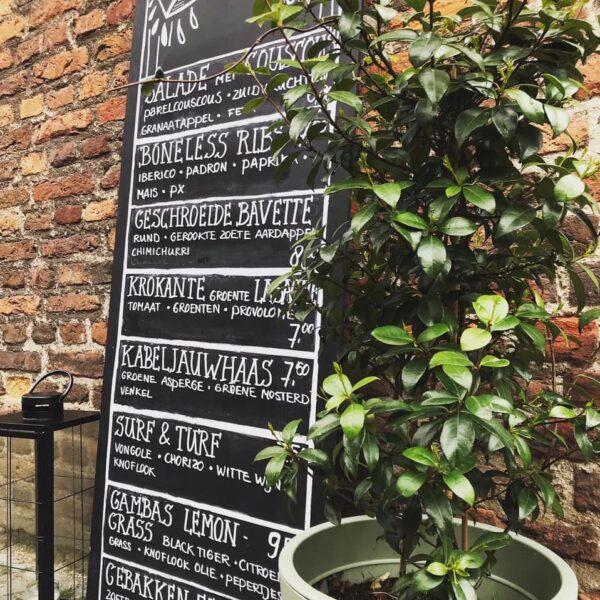 SALADE MET COUSCOUS
PARELCOUSCOUS •
GRANAATAPPEL •
BONELESS RIBS
IBERICO • PADRON • PAPRIKA
MAIS • PX
GESCHROEIDE BAVETTE
RUND • GEROOKTE ZOETE AARDAPPEL
CHIMICHURRI
KROKANTE GROENTE
TOMAAT • GROENTEN • PROVOLONE
7,00
KABELJAUWHAAS 7,60
GROENE ASPERGE • GROENE MOSTERD
VENKEL
SURF & TURF
VONGOLE • CHORIZO • WITTE
KNOFLOOK
GAMBAS LEMON-
GRASS BLACK TIGER •
GRASS • KNOFLOOK OLIE •
GEBAKKEN